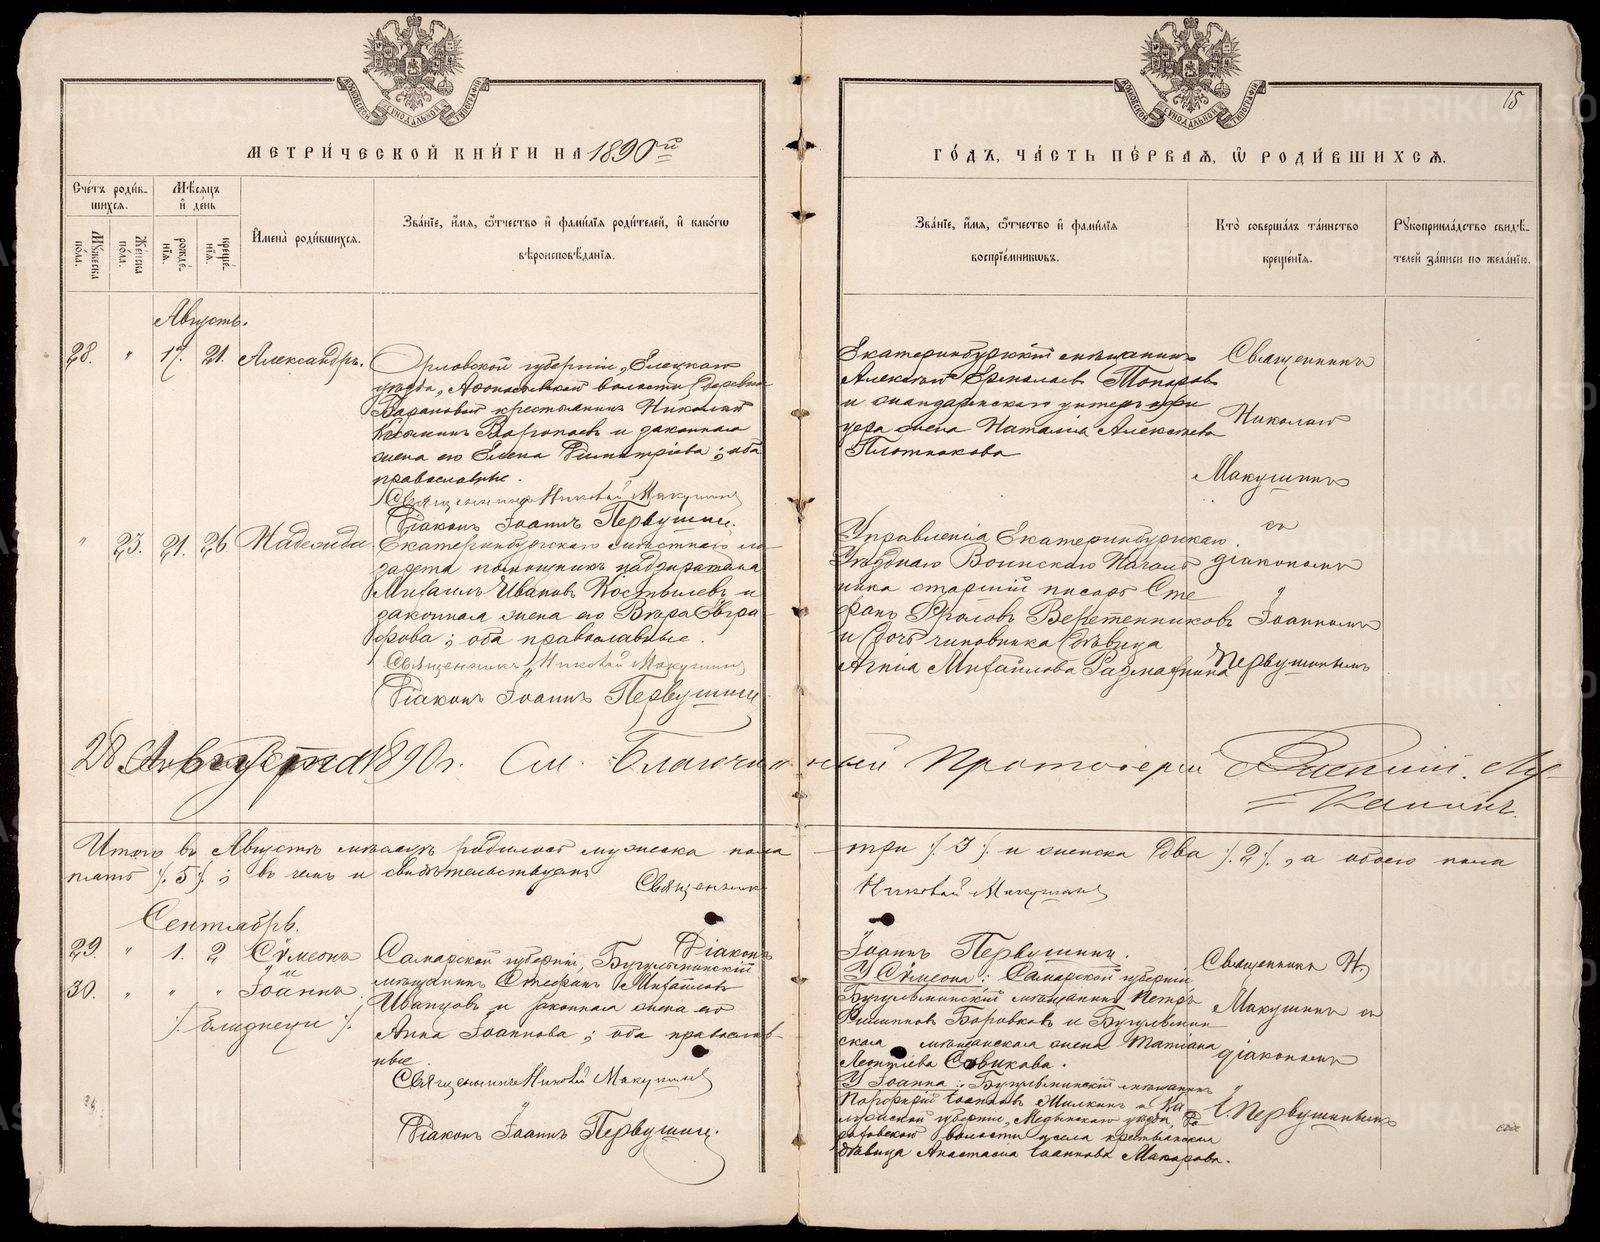 15
МЕТРИ́ЧЕСКОЙ КНИ́ГИ НА 1890й
ГО́ДЪ, ЧА́СТЬ ПЕ́РВАЯ, Ѡ҆ РОДИ́ВШИХСѦ.
Сче́тъ роди́в-
шихсѧ.
Мꙋ́жеска
пола.
Же́нска
по́ла.
Мѣ́сѧцъ
и҆ де́нь
рожде́-
нїѧ.
креще́-
нїѧ.
И҆мена̀ роди́вшихсѧ.
Зва́нїе, и҆́мѧ, ѻ҆́тчество и҆ фами́лїѧ роди́телей, и҆ како́гѡ
вѣроисповѣ́данїѧ.
Зва́нїе, и҆́мѧ, ѻ҆́тчество и҆ фами́лїѧ
воспрїе́мникѡвъ.
Кто̀ соверша́лъ та́инство
креще́нїѧ.
Рꙋкоприкла́дство свидѣ́-
телей за́писи по жела́нїю.
Августъ.
28. " 17. 21. Александръ.
Орловской губерніи, Елецкаго
уѣзда, Афонасьевской волости, деревни
Барановой крестьянинъ Николай
Козьминъ Воропаевъ и законная
жена его Елена Димитріева; оба
православные.
Священникъ Николай Макушинъ
Діаконъ Іоаннъ Первушинъ.
Екатеринбургскій мѣщанинъ
Алексѣй Ермолаевъ Топоровъ
и жандармскаго унтеръ-офи
цера жена Наталія Алексѣева
Плотникова
Священникъ
Николай
Макушинъ
" 23. 21. 26 Надежда
Екатеринбургскаго мѣстнаго ла-
зарета помощникъ надзирателя
Михаилъ Ивановъ Костылевъ и
законная жена его Вѣра Евгра-
фова; оба православные.
Священникъ Николай Макушинъ
Діаконъ Іоаннъ Первушинъ
Управленія Екатеринбургскаго
Уѣзднаго Воинскаго Началь
ника старшій писарь Сте
фанъ Фроловъ Веретенниковъ
и дочь чиновника дѣвица
Агнія Михайлова
съ
діакономъ
Іоанномъ
Первушинымъ
28 Августа 1890 г. См. Благочинный Протоіерей
Итого въ Августѣ мѣсяцѣ родилось мужеска пола три /.3/. и женска два /.2/., а обоего пола
пять /.5/.; въ чемъ и свидѣтельствуемъ
Священникъ Николай Макушинъ
Сентябрь.
Діаконъ Іоаннъ Первушинъ.
29. " 1. 2 Сѵмеонъ
30. " " " Іоаннъ
/. близнецы ./
Самарской губерніи, Бугульминскій
мѣщанинъ Стефанъ Михайловъ
Иванцовъ и законная жена его
Анна Іоаннова; оба православ-
ные.
Священникъ Николай Макушинъ
Діаконъ Іоаннъ Первушинъ.
У Сѵмеона: Самарской губерніи
Бугульминскій мѣщанинъ Петръ
Филипповъ Боровковъ и Бугульмин
ская мѣщанская жена Татіана
Леонтіева Совикова.
У Іоанна: Бугульминскій мѣщанинъ
Порфирій Іоанновъ Жилкинъ и Ка
лужской губерніи, Медынскаго уѣзда,
волости и села крестьянская
дѣвица Анастасія Іоаннова Макарова.
Священникъ Н.
Макушинъ съ
діакономъ
І. Первушинымъ
METRIKI.GASO-URAL.RU